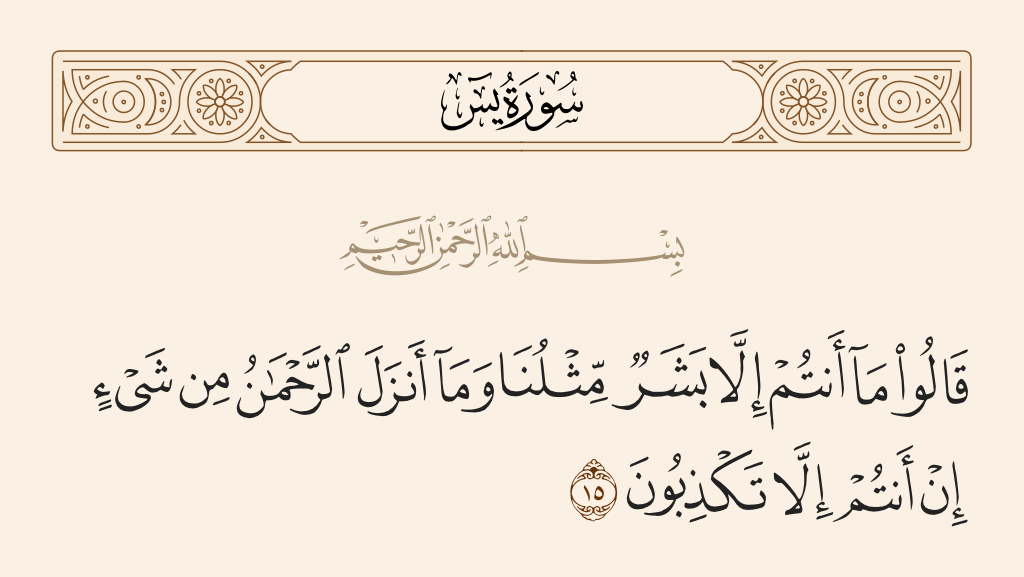 سُورَةُ يسٓ
بِسْمِ ٱللَّهِ ٱلرَّحْمَٰنِ ٱلرَّحِيمِ
قَالُوا۟ مَآ أَنتُمْ إِلَّا بَشَرٌ مِّثْلُنَا وَمَآ أَنزَلَ ٱلرَّحْمَٰنُ مِن شَىْءٍ
إِنْ أَنتُمْ إِلَّا تَكْذِبُونَ ١٥